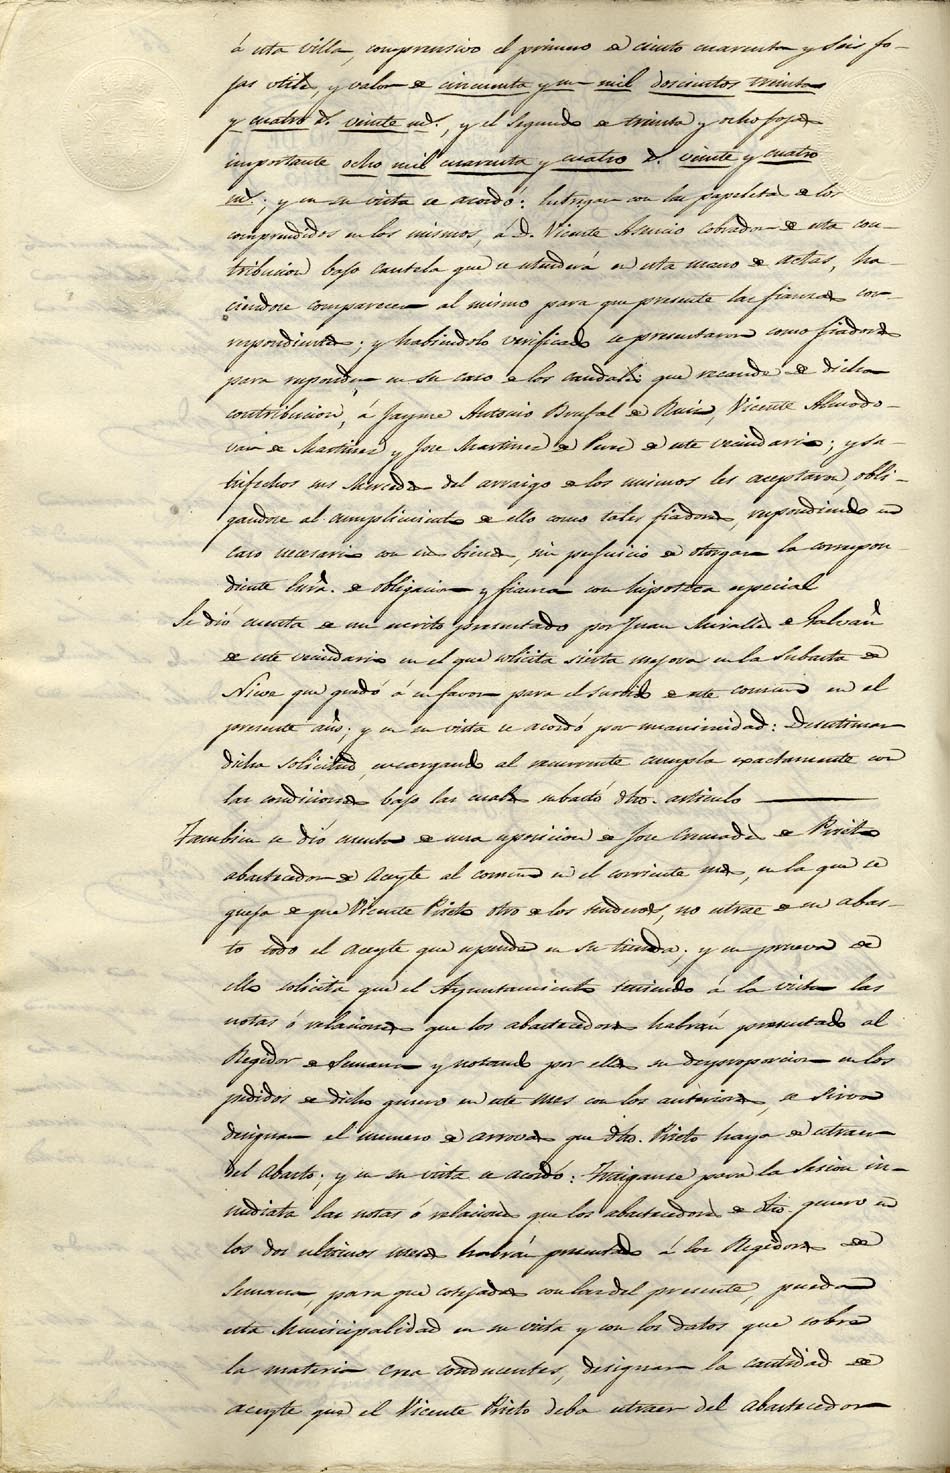 á esta villa, comprensivo el primero de ciento cuarenta y seis fo-
jas utiles, y valor de cincuenta y un mil doscientos treinta
y cuatro r.s veinte m.s, y el segundo de treinta y ocho fojas
importante ocho mil cuarenta y cuatro r.s veinte y cuatro
m.s; y en su vista se acordó: Entreguen con las papeletas de los
comprendidos en los mismos, á D. Vicente Asencio cobrador de esta con-
tribucion bajo cautela que se estenderá en esta mano de actas, ha-
ciendose comparecer al mismo para que presente las fianzas cor-
respondientes; y habiendolo verificado se presentaron como fiadores
para responder en su caso de los caudales que recaude de dicha
contribucion, á Jayme Antonio Brufal de Ruiz, Vicente Almodo-
var de Martinez y Jose Martinez de Pure de este vecindario; y sa-
tisfechos sus Mercedes del arraigo de los mismos les aceptaron, obli-
gandose al cumplimiento de ello como tales fiadores, respondiendo en
caso necesario con sus bienes, sin perjuicio de otorgar la correspon-
diente Escra. de obligacion y fianza con hipoteca especial
Se dió cuenta de un escrito presentado por Juan Miralles de Galvañ
de este vecindario en el que solicita sierta mejora en la subasta de
Nieve que quedó á su favor para el surtido de este comun en el
presente año; y en su vista se acordó por unanimidad: Desestimar
dicha solicitud, encargando al recurrente cumpla exactamente con
las condiciones bajo las cuales subastó dho. articulo
Tambien se dió cuenta de una esposicion de Jose Quesada de Prieto
abastecedor de Aceyte al comun en el corriente mes, en la que se
queja de que Vicente Prieto otro de los tenderos, no estrae de su abas-
to todo el aceyte que espende en su tienda; y en prueva de
ello solicita que el Ayuntamiento teniendo á la vista las
notas ó relaciones que los abastecedores habrán presentado al
Regidor de Semana y notando por ellas su desproporcion en los
pedidos de dicho genero en este mes con los anteriores, se sirva
designar el numero de arrovas que dho. Prieto haya de estraer
del Abasto; y en su vista se acordó: Traiganse para la sesion in-
mediata las notas ó relaciones que los abastecedores de dho. genero en
los dos ultimos meses habrán presentado á los Regidores de
Semana, para que cotejadas con las del presente, pueda
esta Municipalidad en su vista y con los datos que sobre
la materia crea conducentes, designar la cantidad de
aceyte que el Vicente Prieto deba estraer del abastecedor